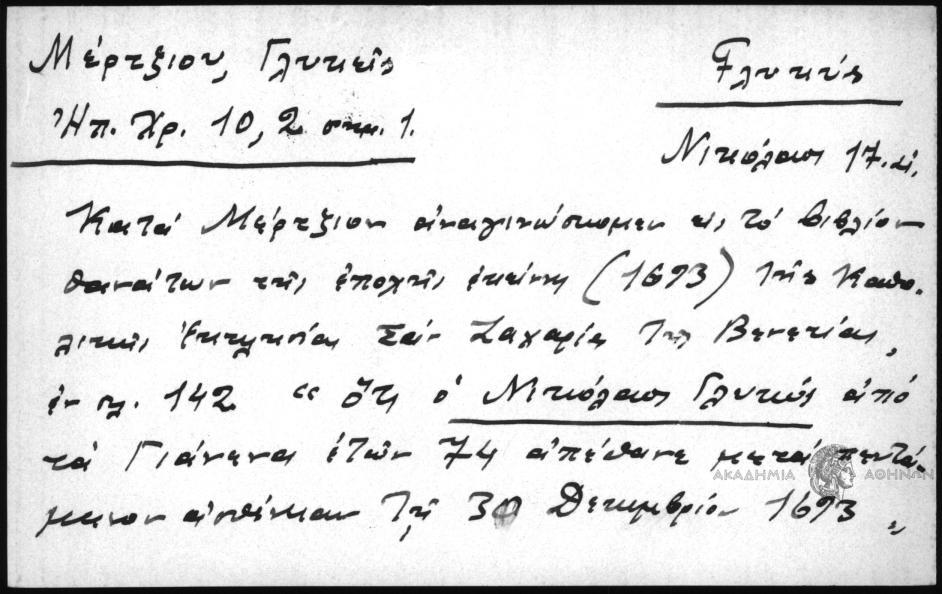 Μέρτζιου, Γλυκεῖς
Γλυκύς
Ἠπ. Χρ. 10, 2 σημ. 1.
Νικόλαος 17. αἰ.
Κατά Μέρτζιον ἀναγινώσκομεν εἰς τό βιβλίον
θανάτων τῆς ἐποχῆς ἐκείνης (1693) τῆς Καθο-
λικῆς Ἐκκλησίας Σάν Ζαχαρία τῆς Βενετίας,
ἐν σελ. 142 « ὅτι ὁ Νικόλαος Γλυκύς ἀπό
τά Γιάνενα ἐτῶν 74 ἀπέθανε μετά πεντά-
μηνον ἀσθένειαν τῇ 30 Δεκεμβρίου 1693 „
ΑΚΑΔΗΜΙΑ ΑΘΗΝΩΝ